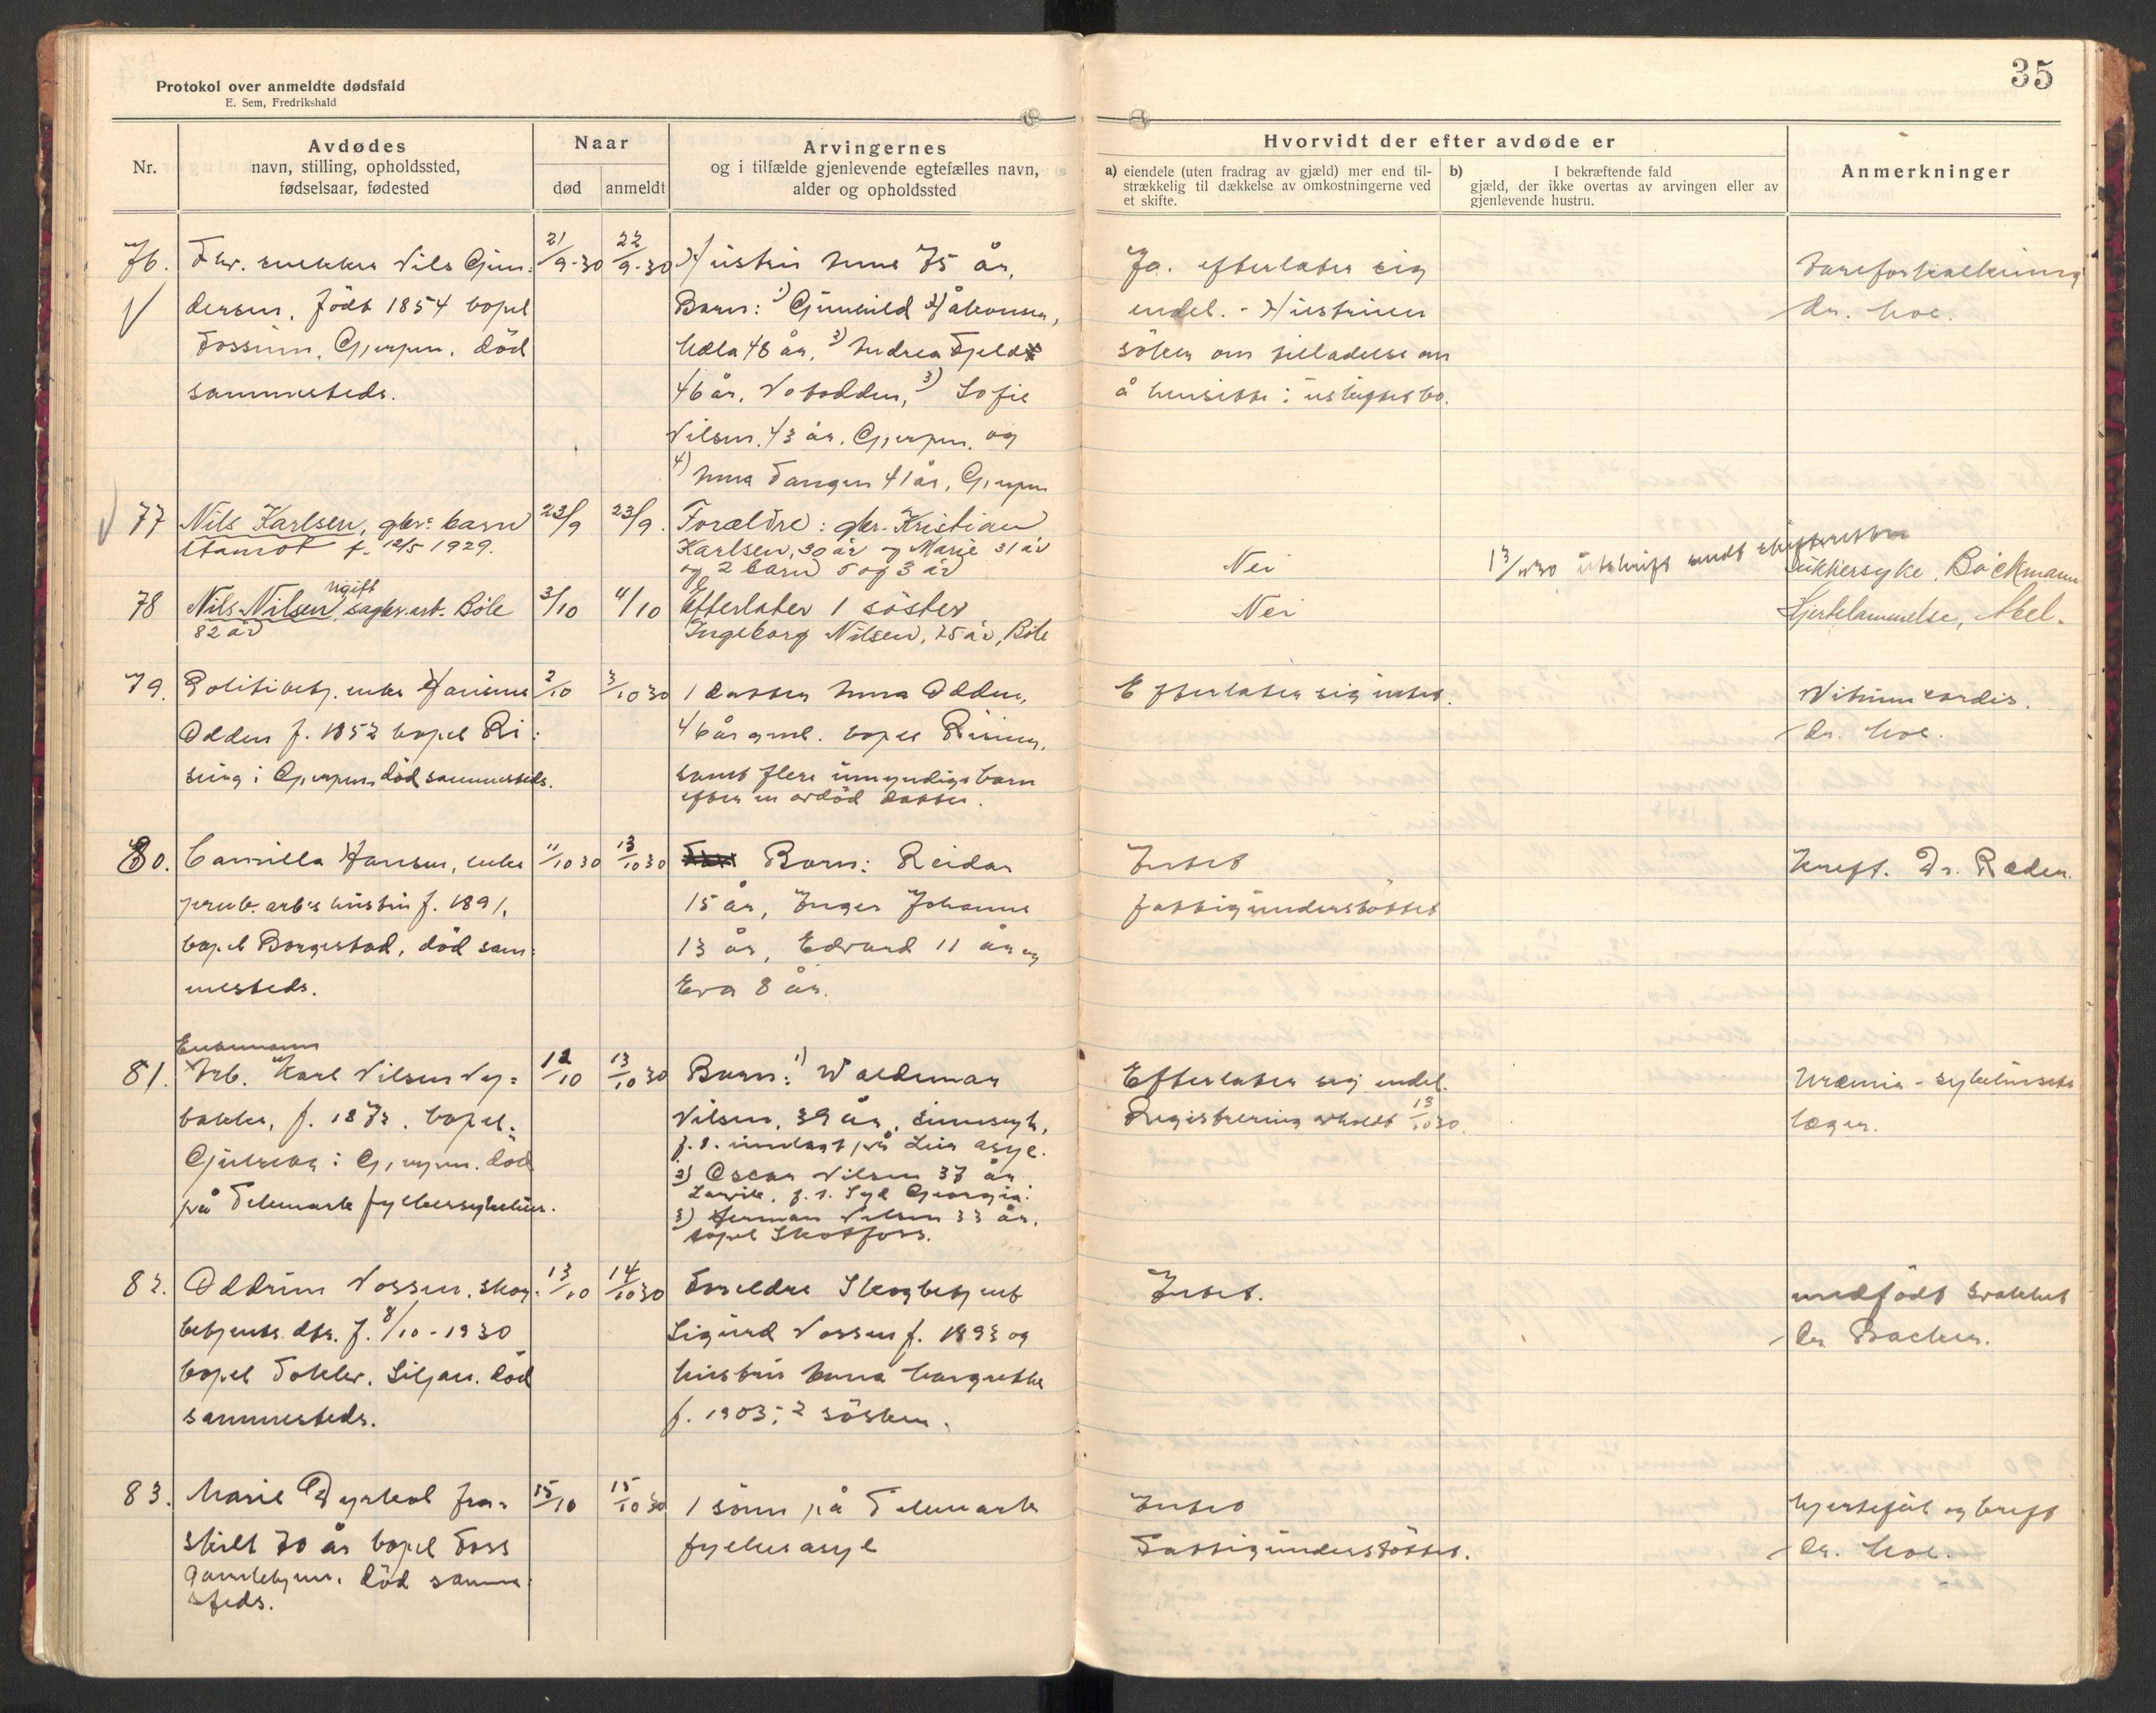 35
Protokol over anmeldte dødsfald
E. Sem, Fredrikshald
Nr.
Avdødes
navn, stilling, opholdssted,
fødselsaar, fødested
Naar
død
anmeldt
Arvingernes
og i tilfælde gjenlevende egtefælles navn,
alder og opholdssted
Hvorvidt der efter avdøde er
a) eiendele (uten fradrag av gjæld) mer end til-
strækkelig til dækkelse av omkostningerne ved
et skifte.
b) I bekræftende fald
gjæld, der ikke overtas av arvingen eller av
gjenlevende hustru.
Anmerkninger
76. Fhv. snekker Nils Gun-
dersen, født 1854 bopel
Fossum, Gjerpen, død
sammesteds.
21/9-30
22/9-30
Hustru Anne 75 år,
Barn: 1) Gunhild Håkonsen,
48 år, 2) Andrea Fjeld
46 år, Notodden, 3) Sofie
Nilsen 43 år, Gjerpen og
4) Anna Tangen 41 år, Gjerpen
Ja. efterlater sig
endel. - Hustruen
söker om tilladelse om
å hensitte i uskiftet bo.
Åreforkalkning
dr. Moe.
77 Nils Karlsen, gbr. barn
f. 12/5 1929.
23/9
23/9.
Forældre: gbr. Kristian
Karlsen, 30 år og Marie 31 år
og 2 barn 5 og 3 år
Nei
utskrift sendt skifteretten
Sukkersyke, Bøckmann
78 Nils Nilsen, ugift sagbr.arb. Böle
82 år
3/10
4/10
Efterlater 1 søster
Ingeborg Nilsen, 75 år, Böle
Nei
Hjertelammelse, Abel.
79. Politibetj. enke
Odden f. 1852 bopel Ri-
sing i Gjerpen, död sammesteds.
2/10
3/10 30
1 datter Anna Odden,
46 år gml. bopel Rising,
samt flere umyndige barn
efter en avdöd datter.
Efterlater sig intet.
Vitium cordis.
dr. Moe.
80. Camilla Hansen, enke
f. 1891,
bopel Borgestad, död sam-
mesteds.
11/10 30
13/10 30
Barn: Reidar
15 år, Inger Johanne
13 år, Edvard 11 år og
Eva 8 år.
Intet
fattigunderstöttet
Kreft. Dr. Ræder.
81. Enkemann
Arb. Karl Nilsen Ny-
bakke, f. 1873. bopel
i Gjerpen. död
på Telemark fylkessykehus.
12/10
13/10 30
Barn: 1) Waldemar
Nilsen, 39 år, sinnsyk,
f. t. innlagt på Lier asyl.
2) Oscar Nilsen 37 år
Larvik, f. t. Syd Georgia.
3) Herman Nilsen 33 år,
bopel Skotfoss.
Efterlater sig endel.
Registrering avholdt 13/10 30.
Uræmia - sykehusets
læger.
82. Oddrun Nossen, skog-
betjents dtr. f. 8/10 - 1930
bopel Siljan. död
sammesteds.
13/10
14/10 30
Foreldre Skogbetjent
Sigurd Nossen f. 1893 og
hustru Anna Margrethe
f. 1903; 2 sösken.
Intet.
medfödt svakhet
dr Backer.
83. Marie Dyrkol fra-
skilt 70 år bopel Foss
Gamlehjem. Död samme-
steds.
15/10
15/10 30
1 sönn på Telemark
fylkesasyl
Intet
Fattigunderstöttet.
hjertefeil og kreft
dr. Moe.